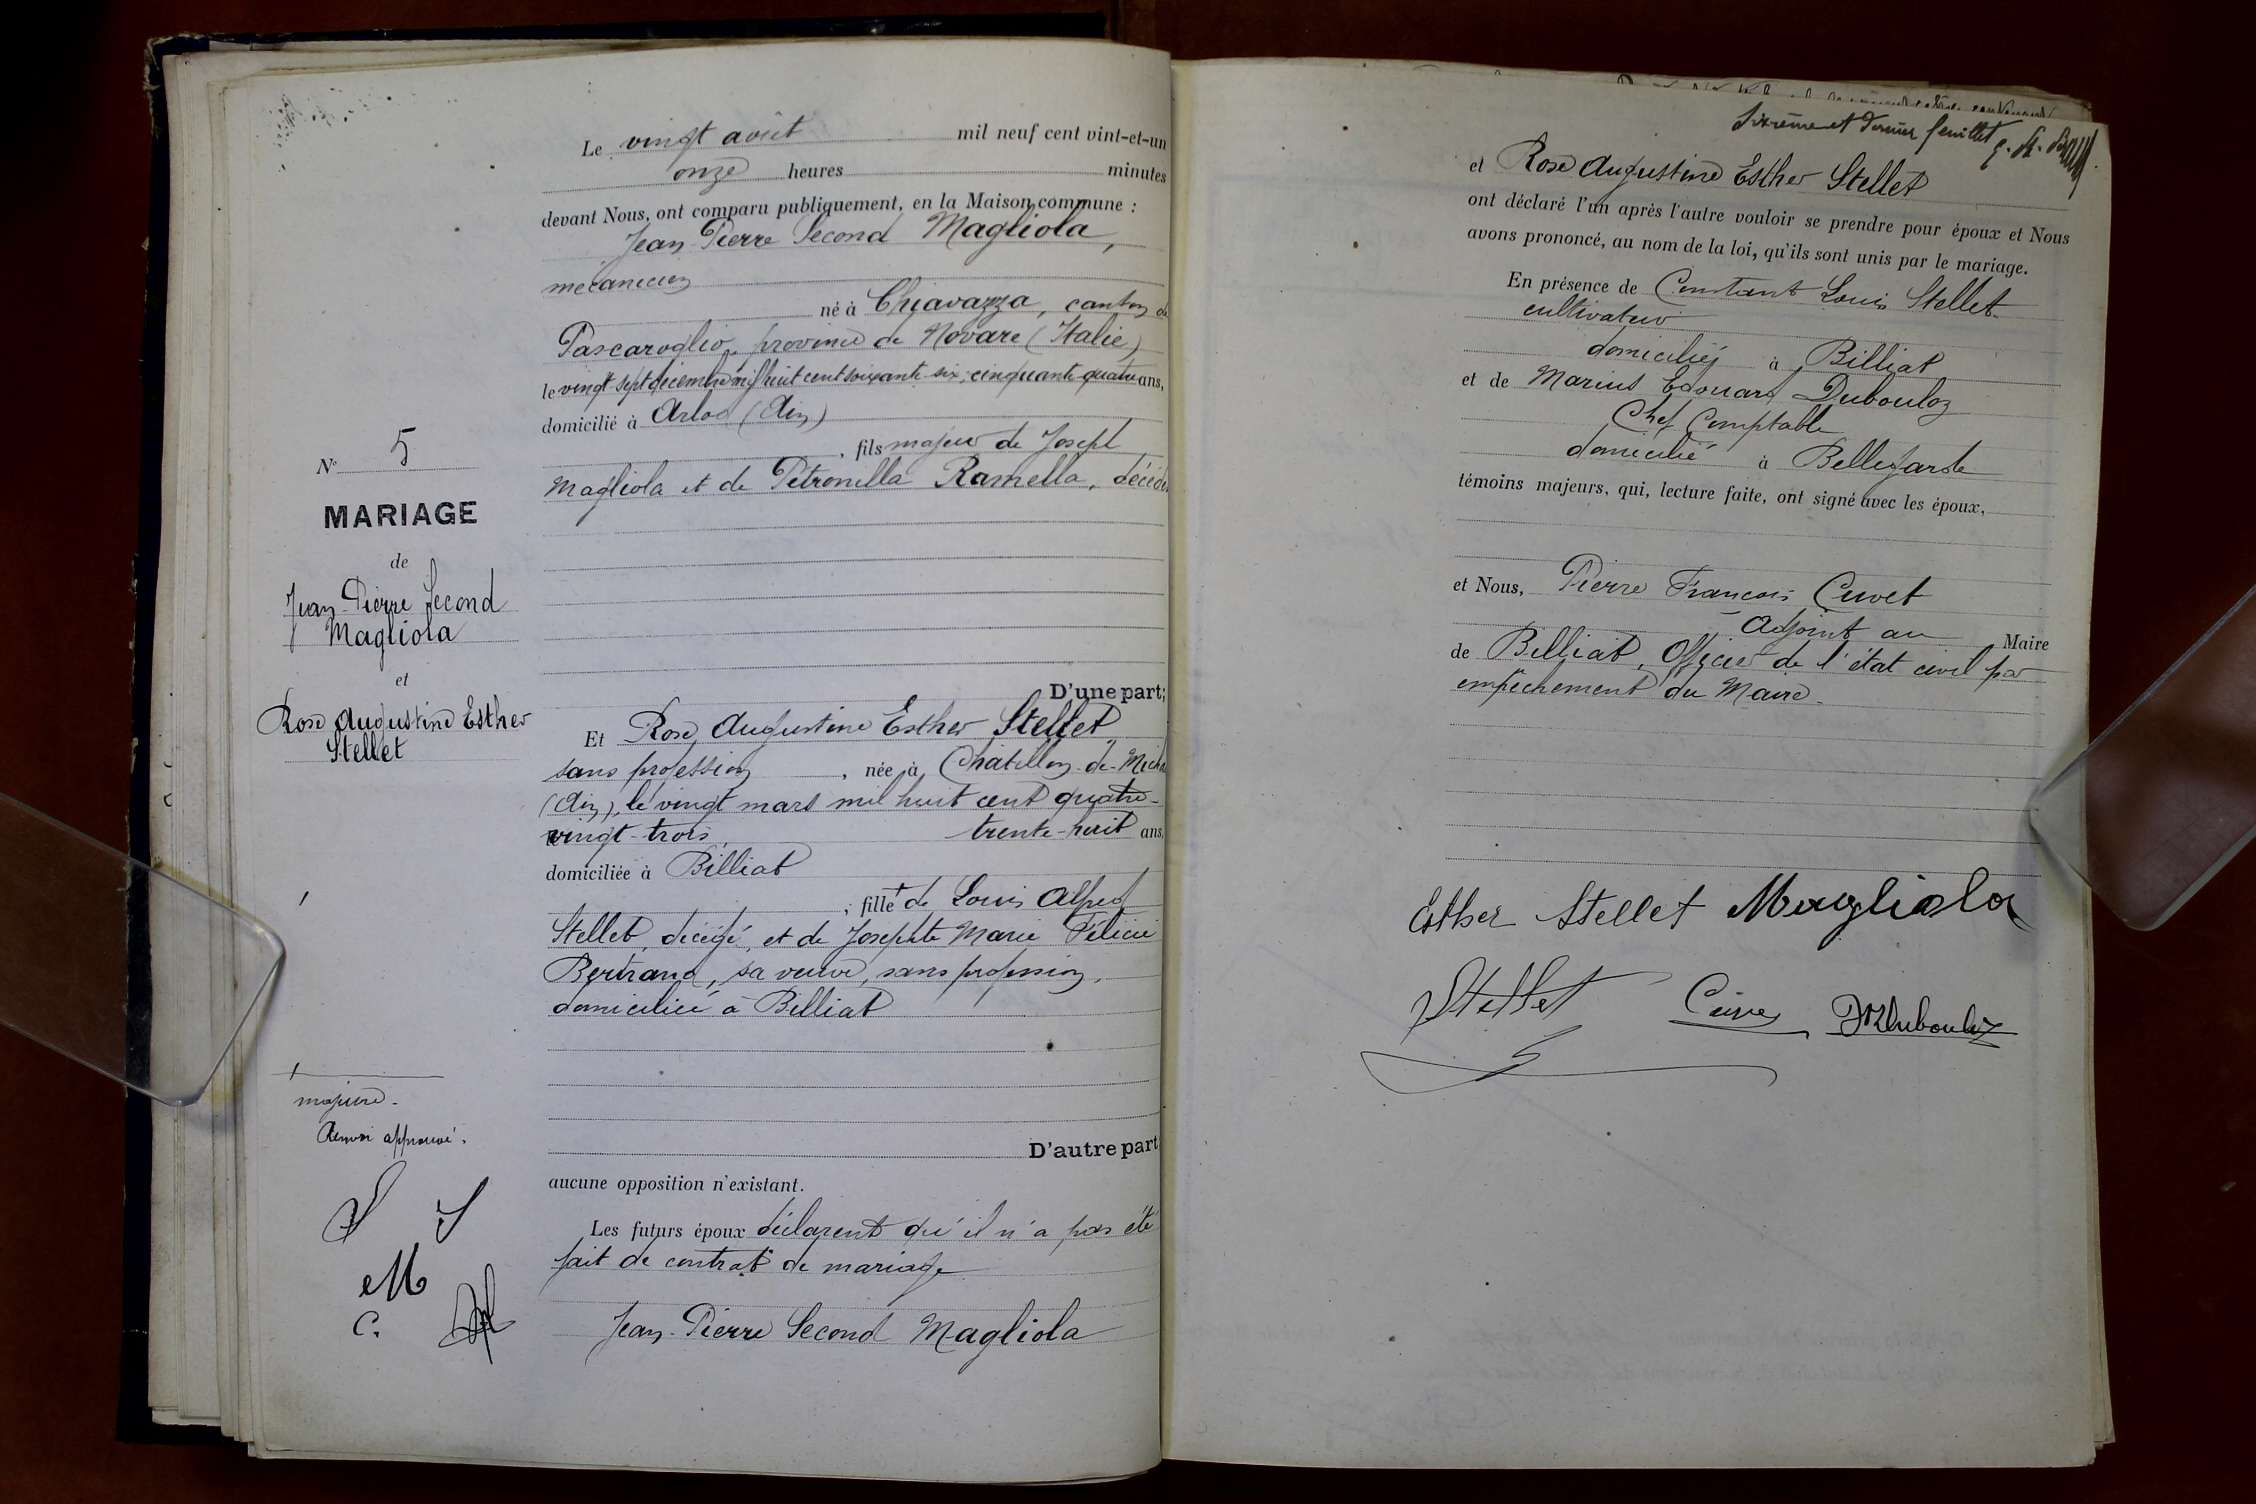 Le vingt août mil neuf cent vint-et-un
onze heures minutes
devant Nous, ont comparu publiquement, en la Maison commune :
Jean-Pierre Second Magliola,
mécanicien
né à Chiavazza, canton de
Pascaroglio, province de Novare (Italie)
le vingt sept décembre mil huit cent soixante-six, cinquante-quatre ans,
domicilié à Arlod (Ain)
, fils majeur de Joseph
Magliola et de Pétronilla Ramella, décédés
D'une part;
N° 5
MARIAGE
de
Jean-Pierre Second
Magliola
et
Rose Augustine Esther
Stellet
Et Rose Augustine Esther Stellet
sans profession, née à Châtillon-de-Mich
(Ain), le vingt mars mil huit cent quatre-
vingt-trois, trente-huit ans,
domiciliée à Billiat
, fille de Louis Alfred
Stellet, décédé, et de Josephte Marie Félicie
Bertrand, sa veuve, sans profession,
domiciliée à Billiat
D'autre part
majeure.
Renvoi approuvé.
S S
M
C.
aucune opposition n'existant.
Les futurs époux déclarent qu'il n'a pas été
fait de contrat de mariage
Jean-Pierre Second Magliola
Sixième et dernier feuillet
et Rose Augustine Esther Stellet
ont déclaré l'un après l'autre vouloir se prendre pour époux et Nous
avons prononcé, au nom de la loi, qu'ils sont unis par le mariage.
En présence de Constant Louis Stellet
cultivateur
domicilié à Billiat
et de Marius Edouard Dubouloz
Chef Comptable
domicilié à Bellegarde
témoins majeurs, qui, lecture faite, ont signé avec les époux,
et Nous, Pierre François Cuvet
Adjoint au Maire
de Billiat, Officier de l'état civil par
empêchement du Maire.
Esther Stellet Magliola
Stellet Cuvet Dubouloz